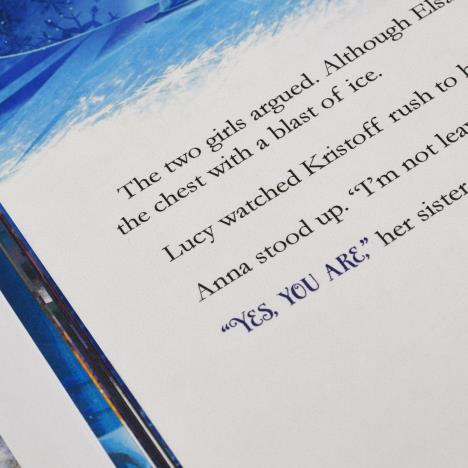 The two girls argued. Although Elsa
the chest with a blast of ice.
Lucy watched Kristoff rush to
Anna stood up. “I’m not
“YES, YOU ARE,” her sister